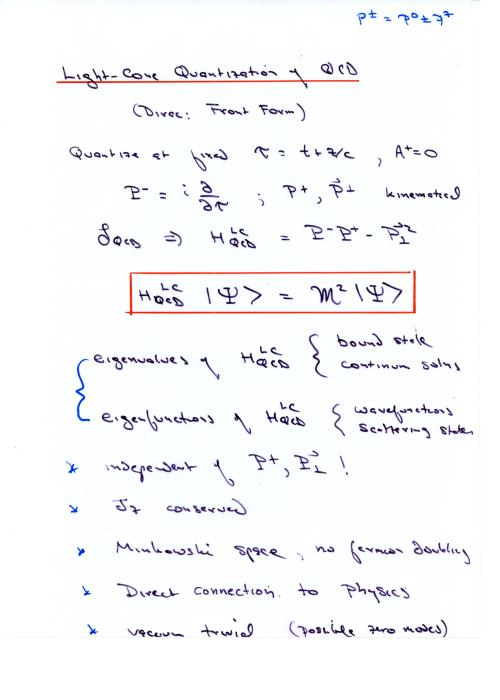 P± = P⁰ ± P^z
Light-Cone Quantization of QCD
(Dirac: Front Form)
Quantize at fixed τ = t + z/c , A⁺=0
P⁻ = i ∂/∂τ ; P⁺, P⃗⊥ kinematical
ℒQCD ⇒ H^LC_QCD = P⁻P⁺ - P⃗⊥²
H^LC_QCD |Ψ> = M² |Ψ>
eigenvalues of H^LC_QCD { bound state
continuum solns
eigenfunctions of H^LC_QCD { wavefunctions
scattering states
* independent of P⁺, P⃗⊥ !
* Jz conserved
* Minkowski space, no fermion doubling
* Direct connection to physics
* vacuum trivial (possible zero modes)